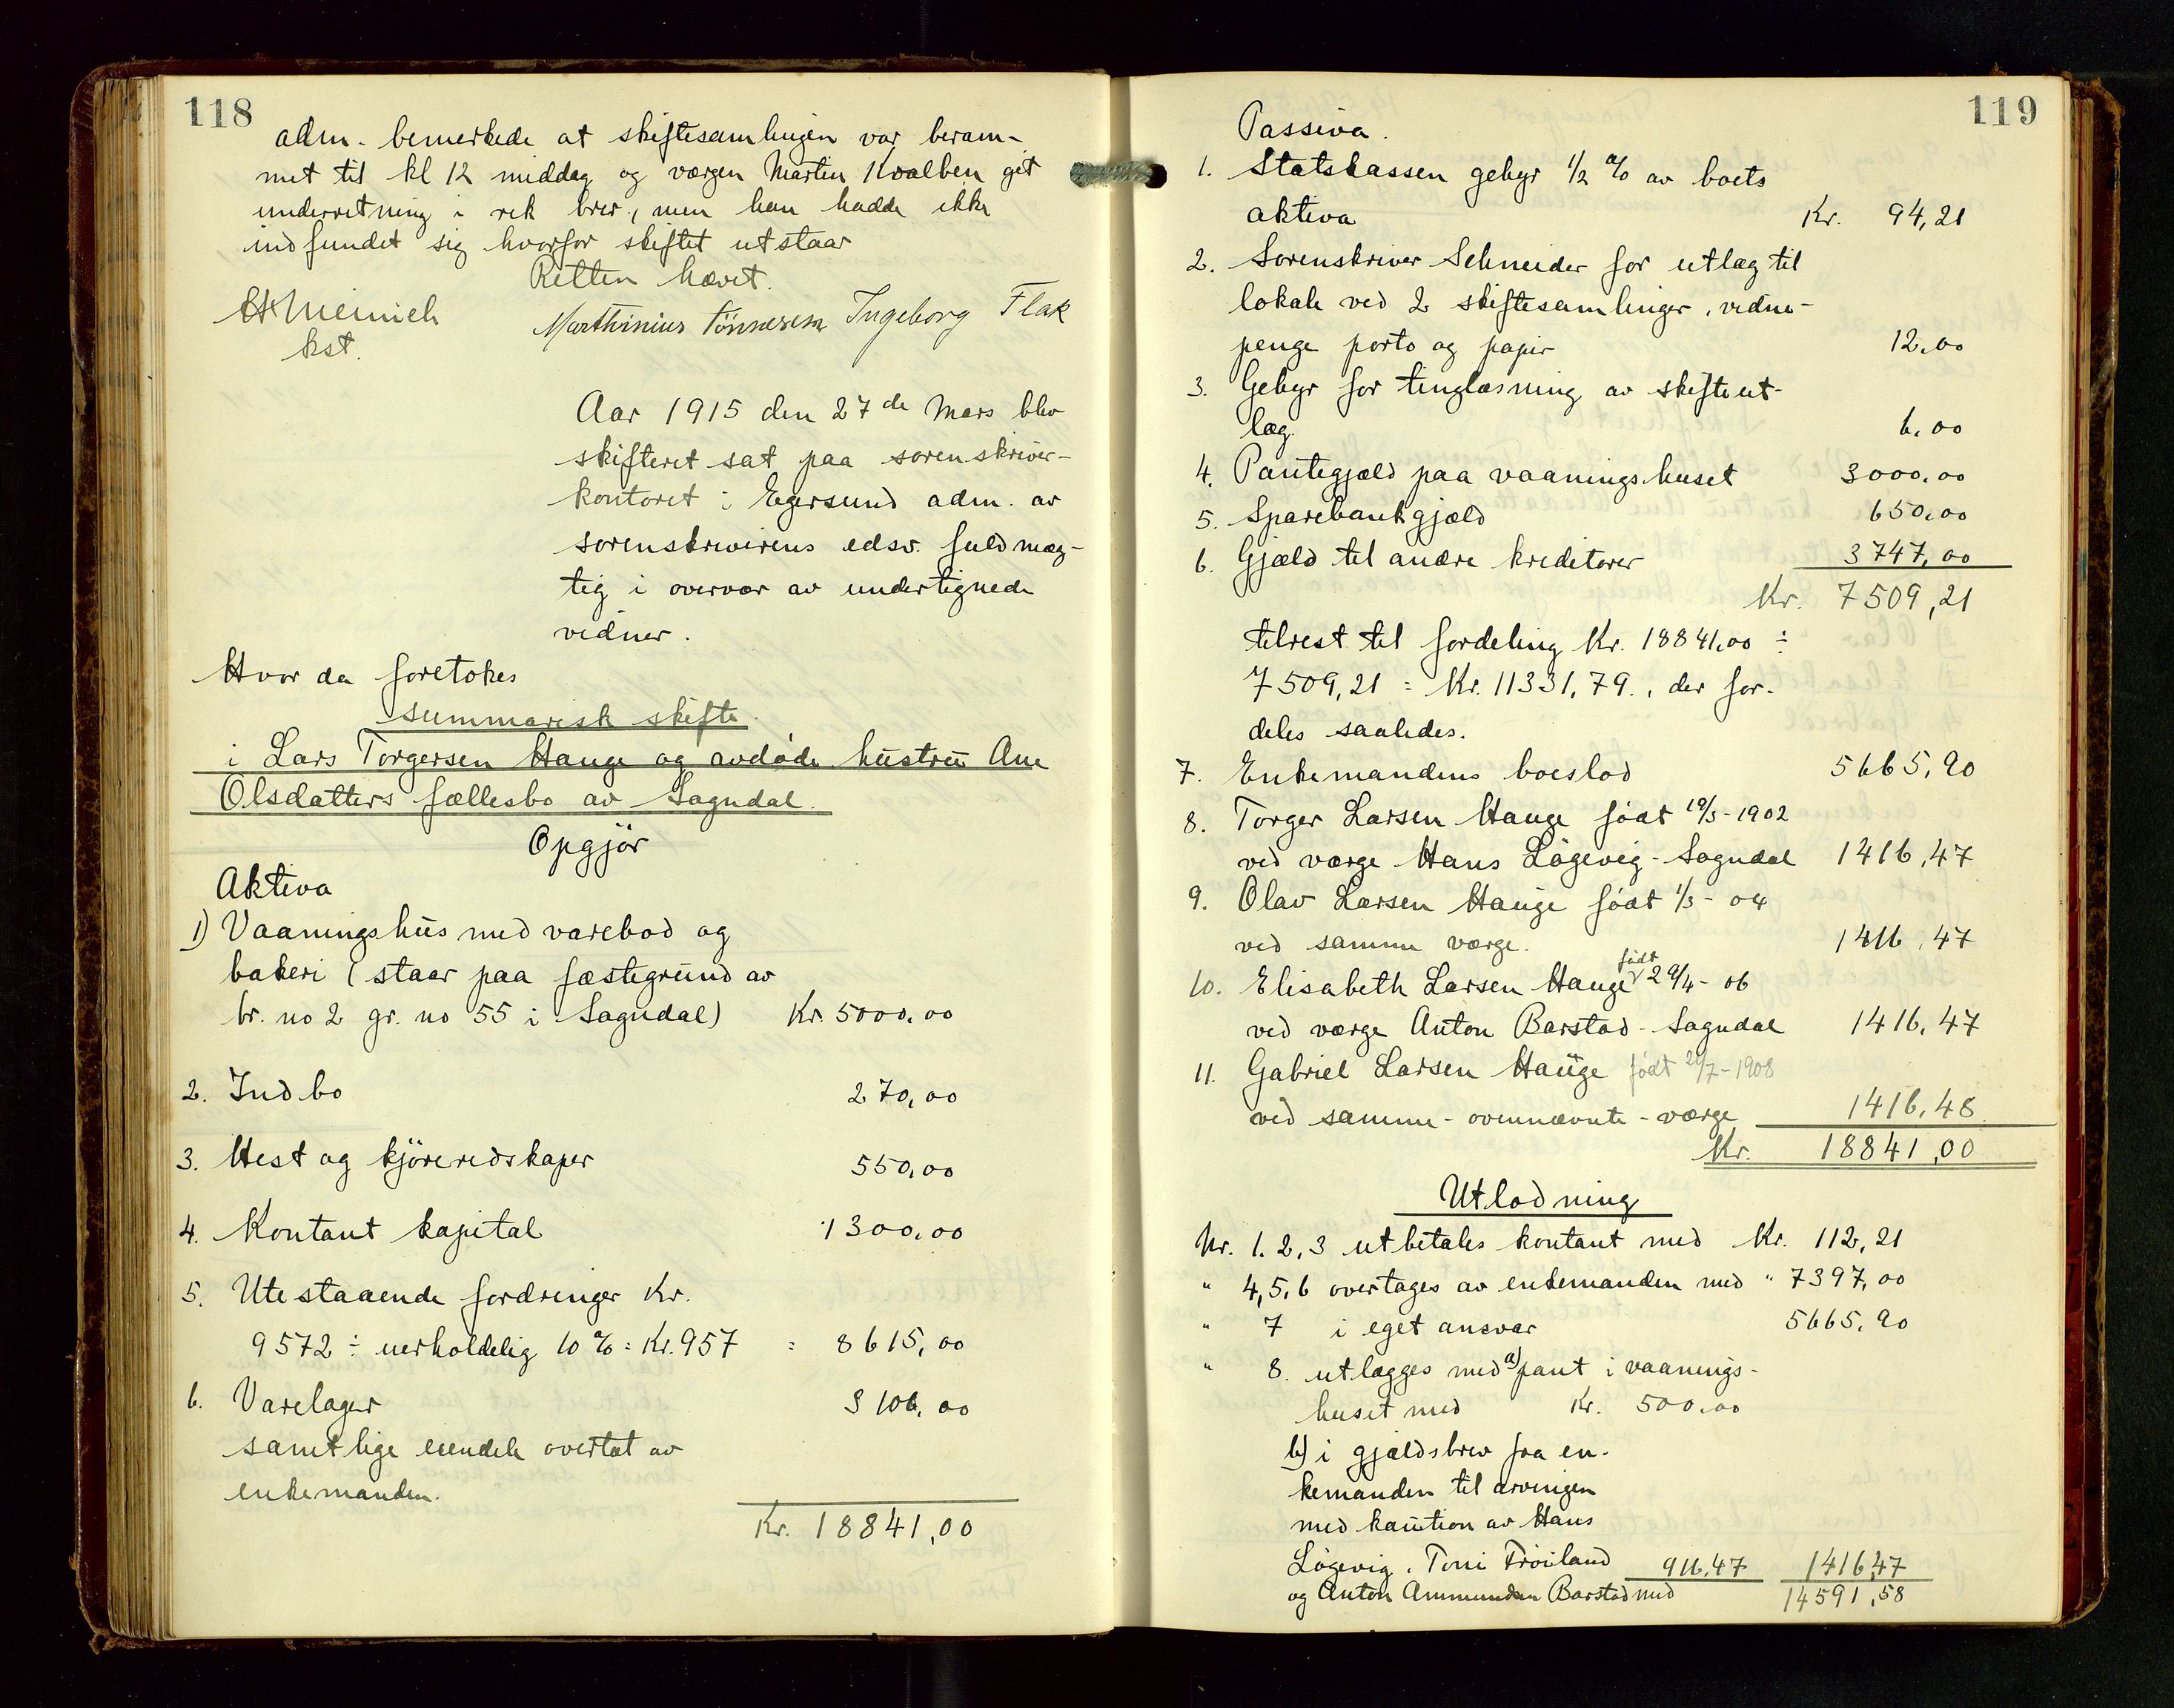 118
adm. bemerkede at skiftesamlingen var beram-
met til kl 12 middag og værgen Martin Kvalben git
underretning i rek brev, men han hadde ikke
indfundet sig hvorfor skiftet utstaar
Retten hævet.
kst.
Marthinius Tönnesen Ingeborg Flak
Aar 1915 den 27de Mars blev
skifteret sat paa sorenskriver-
kontoret i Egersund adm. av
sorenskriverens edsv. fuldmæg-
tig i overvær av undertignede
vidner.
Hvor da foretokes
summarisk skifte
i Lars Torgersen Hauge og avdøde hustru Ane
Olsdatters fællesbo av Sogndal.
Opgjör
Aktiva
1) Vaaningshus med varebod og
bakeri (staar paa fæstegrund av
br. no 2 gr. no 55 i Sogndal) Kr. 5000,00
2. Indbo 270,00
3. Hest og kjöreredskaper 550,00
4. Kontant kapital 1300,00
5. Utestaaende fordringer Kr.
9572 ÷ uerholdelig 10 % = Kr. 957 = 8615,00
6. Varelager 3106,00
samtlige eiendele overtat av
enkemanden.
Kr. 18841,00
119
Passiva.
1. Statskassen gebyr 1/2 % av boets
aktiva Kr. 94,21
2. Sorenskriver Schneider for utlæg til
lokale ved 2 skiftesamlinger, vidne-
penge porto og papir 12,00
3. Gebyr for tinglæsning av skifteut-
læg. 6,00
4. Pantegjæld paa vaaningshuset 3000,00
5. Sparebankgjæld 650,00
6. Gjæld til andre kreditorer 3747,00
Kr. 7509,21
tilrest til fordeling Kr. 18841,00 ÷
7509,21 = Kr. 11331,79., der for-
deles saaledes.
7. Enkemandens boeslod 5665,90
8. Torger Larsen Hauge födt 19/3-1902
ved værge Hans Lögevig - Sogndal 1416,47
9. Olav Larsen Hauge födt 1/3 - 04
ved samme værge. 1416,47
10. Elisabeth Larsen Hauge födt 29/4 - 06
ved værge Anton Barstad - Sogndal 1416,47
11. Gabriel Larsen Hauge födt 21/7-1908
ved samme - ovennævnte - værge 1416,48
Kr. 18841,00
Utlodning
Nr. 1. 2, 3 utbetales kontant med Kr. 112,21
" 4, 5, 6 overtages av enkemanden med " 7397,00
" 7 i eget ansvar 5665,90
" 8. utlægges med a) pant i vaanings-
huset med Kr. 500,00
b) i gjældsbrev fra en-
kemanden til arvingen
med kaution av Hans
Lögevig, Toni Fröiland 916,47 1416,47
og Anton Ammundsen Barstad med 14591,58